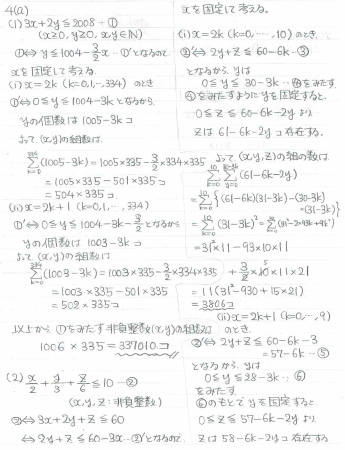 4(a)
(1) 3x+2y≦2008 …①
(x≧0, y≧0, x,y∈N)
①⇔ y≦1004-3/2x …①'となるので
xを固定して考える.
(i) x=2k (k=0,1,…,334) のとき
①'⇔0≦y≦1004-3kとなるから
yの個数は 1005-3k コ
よって (x,y)の組数は.
334Σk=0(1005-3k)=1005×335-3/2×334×335
=1005×335-501×335コ
=504×335コ
(ii) x=2k+1 (k=0,1,…,334)
①'⇔0≦y≦1004-3k-3/2となるから
yの個数は 1003-3kコ
よって (x,y)の組数は
334Σk=0(1003-3k)=1003×335-3/2×334×335
=1003×335-501×335
=502×335コ
以上から ①をみたす非負整数(x,y)の組数は
1006×335=337010コ
(2) x/2+y/3+z/6≦10 …②
(x,y,z:非負整数)
②⇔3x+2y+z≦60
⇔2y+z≦60-3x …②'となるので
xを固定して考える.
(i) x=2k (k=0,…,10) のとき
②'⇔2y+z≦60-6k …③
となるから yは
0≦y≦30-3k …④をみたす
④をみたすようにyを固定すると,
0≦z≦60-6k-2y より
zは61-6k-2yコ存在する.
よって (x,y,z)の組の数は.
10Σk=0 30-3kΣy=0(61-6k-2y)
=10Σk=0{(61-6k)(31-3k)-(30-3k)
×(31-3k)}
=10Σk=0(31-3k)²=10Σk=0(31²-2×93k+9k²)
=31²×11-93×10×11
+3/2×10×11×21
=11(31²-930+15×21)
=3806コ
(ii) x=2k+1 (k=0,…,9)
のとき,
②'⇔2y+z≦60-6k-3
=57-6k …⑤
となるから, yは
0≦y≦28-3k …⑥
をみたす.
⑥のもとでyを固定すると
0≦z≦57-6k-2y より
zは 58-6k-2yコ存在する